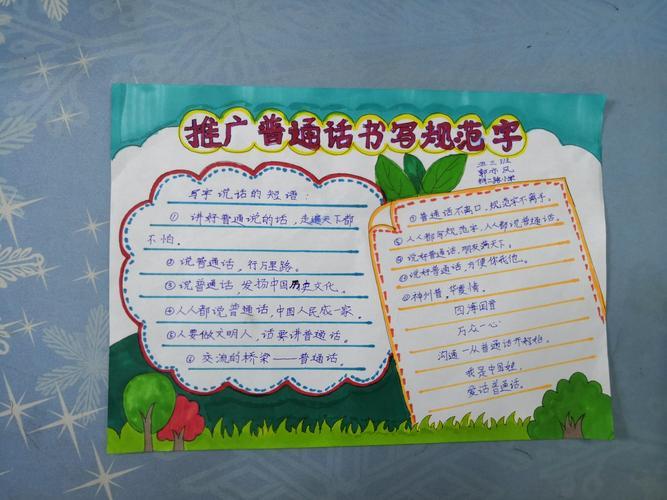 推广普通话书写规范字
写字说话的短语：
①讲好普通说的话，走遍天下都
不怕。
②说普通话，行万里路。
③说普通话 发扬中国历史文化。
④人人都说普通话，中国人民成一家。
⑤人要做文明人，话要讲普通话。
⑥交流的桥梁——普通话。
①普通话不离口，规范字不离手。
②人人都写规范字，人人都说普通话。
③说好普通话，朋友满天下。
④说好普通话，方便你我他。
⑤神州普，华夏情。
四海同音
万众一心
沟通－从普通话开始。
我是中国娃
爱话普通话。